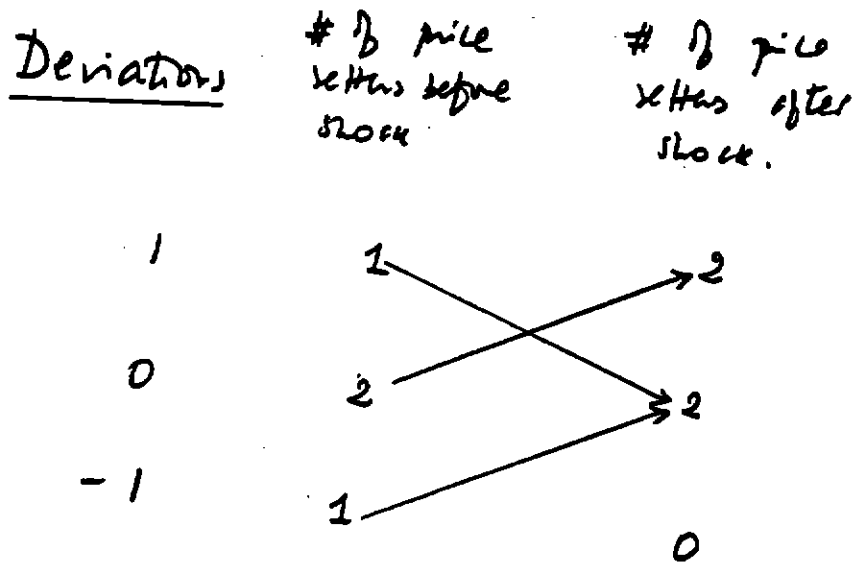 Deviations
# of price
setters before
shock
# of price
setters after
shock.
1 1 2
0 2 2
-1 1
0